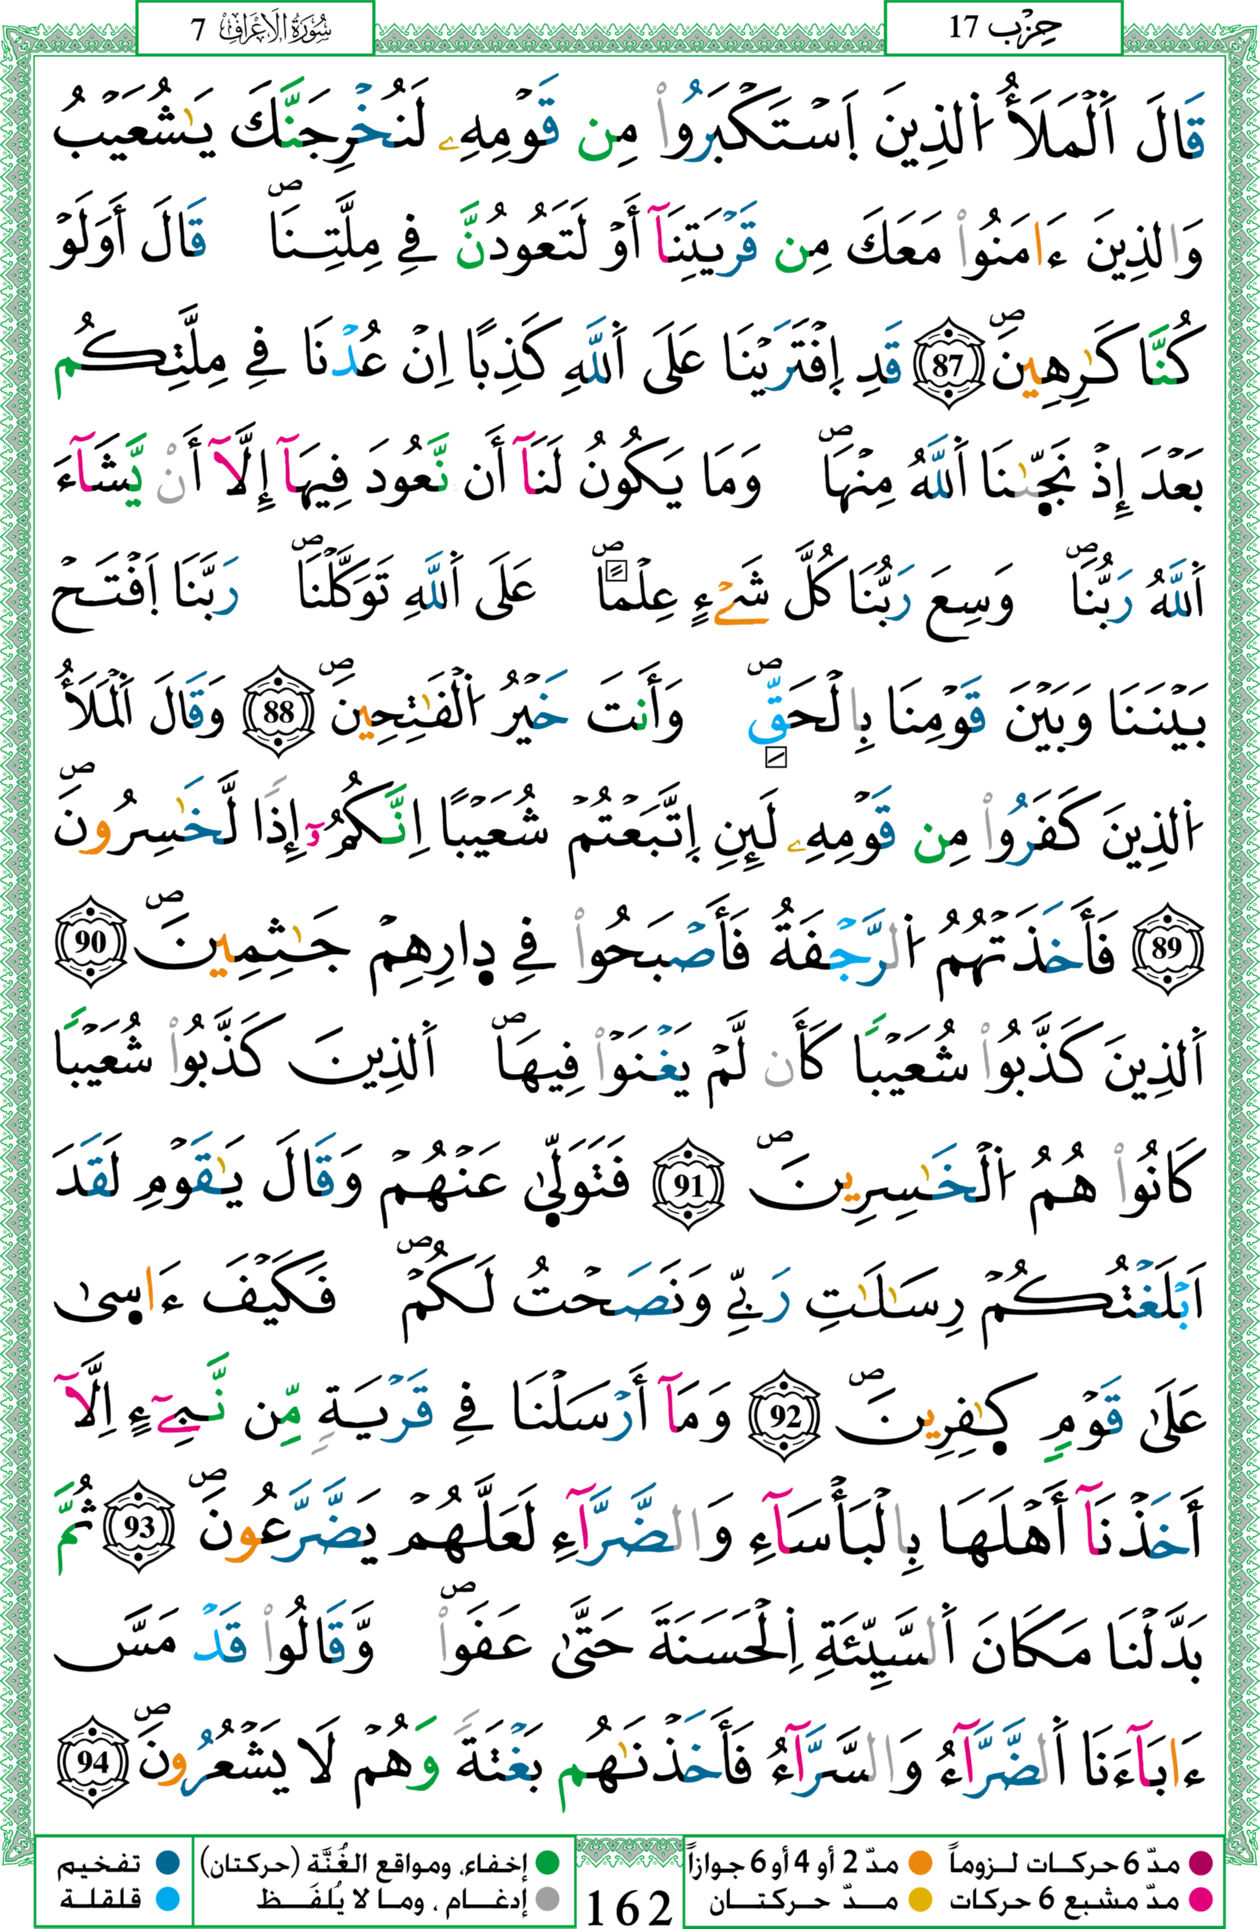 سُورَةُ الاَعْرَافِ 7
حِزْب 17
قَالَ اَ۬لْمَلَأُ اُ۬لذِينَ اَ۪سْتَكْبَرُواْ مِن قَوْمِهِۦ لَنُخْرِجَنَّكَ يَٰشُعَيْبُ
وَالذِينَ ءَامَنُواْ مَعَكَ مِن قَرْيَتِنَآ أَوْ لَتَعُودُنَّ فِے مِلَّتِنَاۖ قَالَ أَوَلَوْ
كُنَّا كَٰرِهِينَۖ 87 قَدِ اِ۪فْتَرَيْنَا عَلَى اَ۬للَّهِ كَذِباً اِنْ عُدْنَا فِے مِلَّتِكُم
بَعْدَ إِذْ نَجّ۪يٰنَا اَ۬للَّهُ مِنْهَاۖ وَمَا يَكُونُ لَنَآ أَن نَّعُودَ فِيهَآ إِلَّآ أَنْ يَّشَآءَ
اَ۬للَّهُ رَبُّنَاۖ وَسِعَ رَبُّنَا كُلَّ شَےْءٍ عِلْماًۖ عَلَى اَ۬للَّهِ تَوَكَّلْنَاۖ رَبَّنَا اَ۪فْتَحْ
بَيْنَنَا وَبَيْنَ قَوْمِنَا بِالْحَقِّۖ وَأَنتَ خَيْرُ اُ۬لْفَٰتِحِينَۖ 88 وَقَالَ اَ۬لْمَلَأُ
اُ۬لذِينَ كَفَرُواْ مِن قَوْمِهِۦ لَئِنِ اِ۪تَّبَعْتُمْ شُعَيْباً اِنَّكُمُۥٓ إِذاً لَّخَٰسِرُونَۖ
89 فَأَخَذَتْهُمُ اُ۬لرَّجْفَةُ فَأَصْبَحُواْ فِے د۪ارِهِمْ جَٰثِمِينَۖ 90
اَ۬لذِينَ كَذَّبُواْ شُعَيْباً كَأَن لَّمْ يَغْنَوْاْ فِيهَاۖ اَ۬لذِينَ كَذَّبُواْ شُعَيْباً
كَانُواْ هُمُ اُ۬لْخَٰسِرِينَۖ 91 فَتَوَلّ۪يٰ عَنْهُمْ وَقَالَ يَٰقَوْمِ لَقَدَ
اَبْلَغْتُكُمْ رِسَٰلَٰتِ رَبِّے وَنَصَحْتُ لَكُمْۖ فَكَيْفَ ءَاس۪يٰ
عَلَىٰ قَوْمٍ كٰ۪فِرِينَۖ 92 وَمَآ أَرْسَلْنَا فِے قَرْيَةٍ مِّن نَّبِےٓءٍ اِلَّآ
أَخَذْنَآ أَهْلَهَا بِالْبَأْسَآءِ وَالضَّرَّآءِ لَعَلَّهُمْ يَضَّرَّعُونَۖ 93 ثُمَّ
بَدَّلْنَا مَكَانَ اَ۬لسَّيِّئَةِ اِ۬لْحَسَنَةَ حَتَّىٰ عَفَواْۖ وَّقَالُواْ قَدْ مَسَّ
ءَابَآءَنَا اَ۬لضَّرَّآءُ وَالسَّرَّآءُ فَأَخَذْنَٰهُم بَغْتَةً وَهُمْ لَا يَشْعُرُونَۖ 94
مدّ 6 حركات لـزوماً مدّ 2 أو 4 أو 6 جوازاً إخفاء، ومواقع الغُنَّة (حركتان) تفخيم
مدّ مشبع 6 حركات مـدّ حـركتـان إدغـام ، ومـا لا يُلفَـظ قلقلة
162